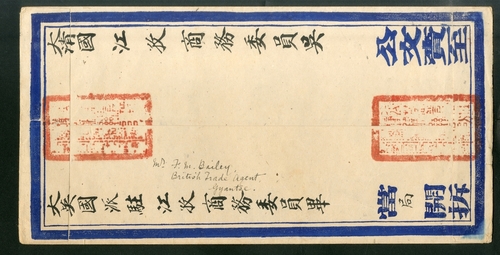 大清國江孜商務委員吳
公文賫至
Mr. F. M. Bailey
British Trade Agent
Gyantse.
大英國派駐江孜商務委員畢
當局開拆